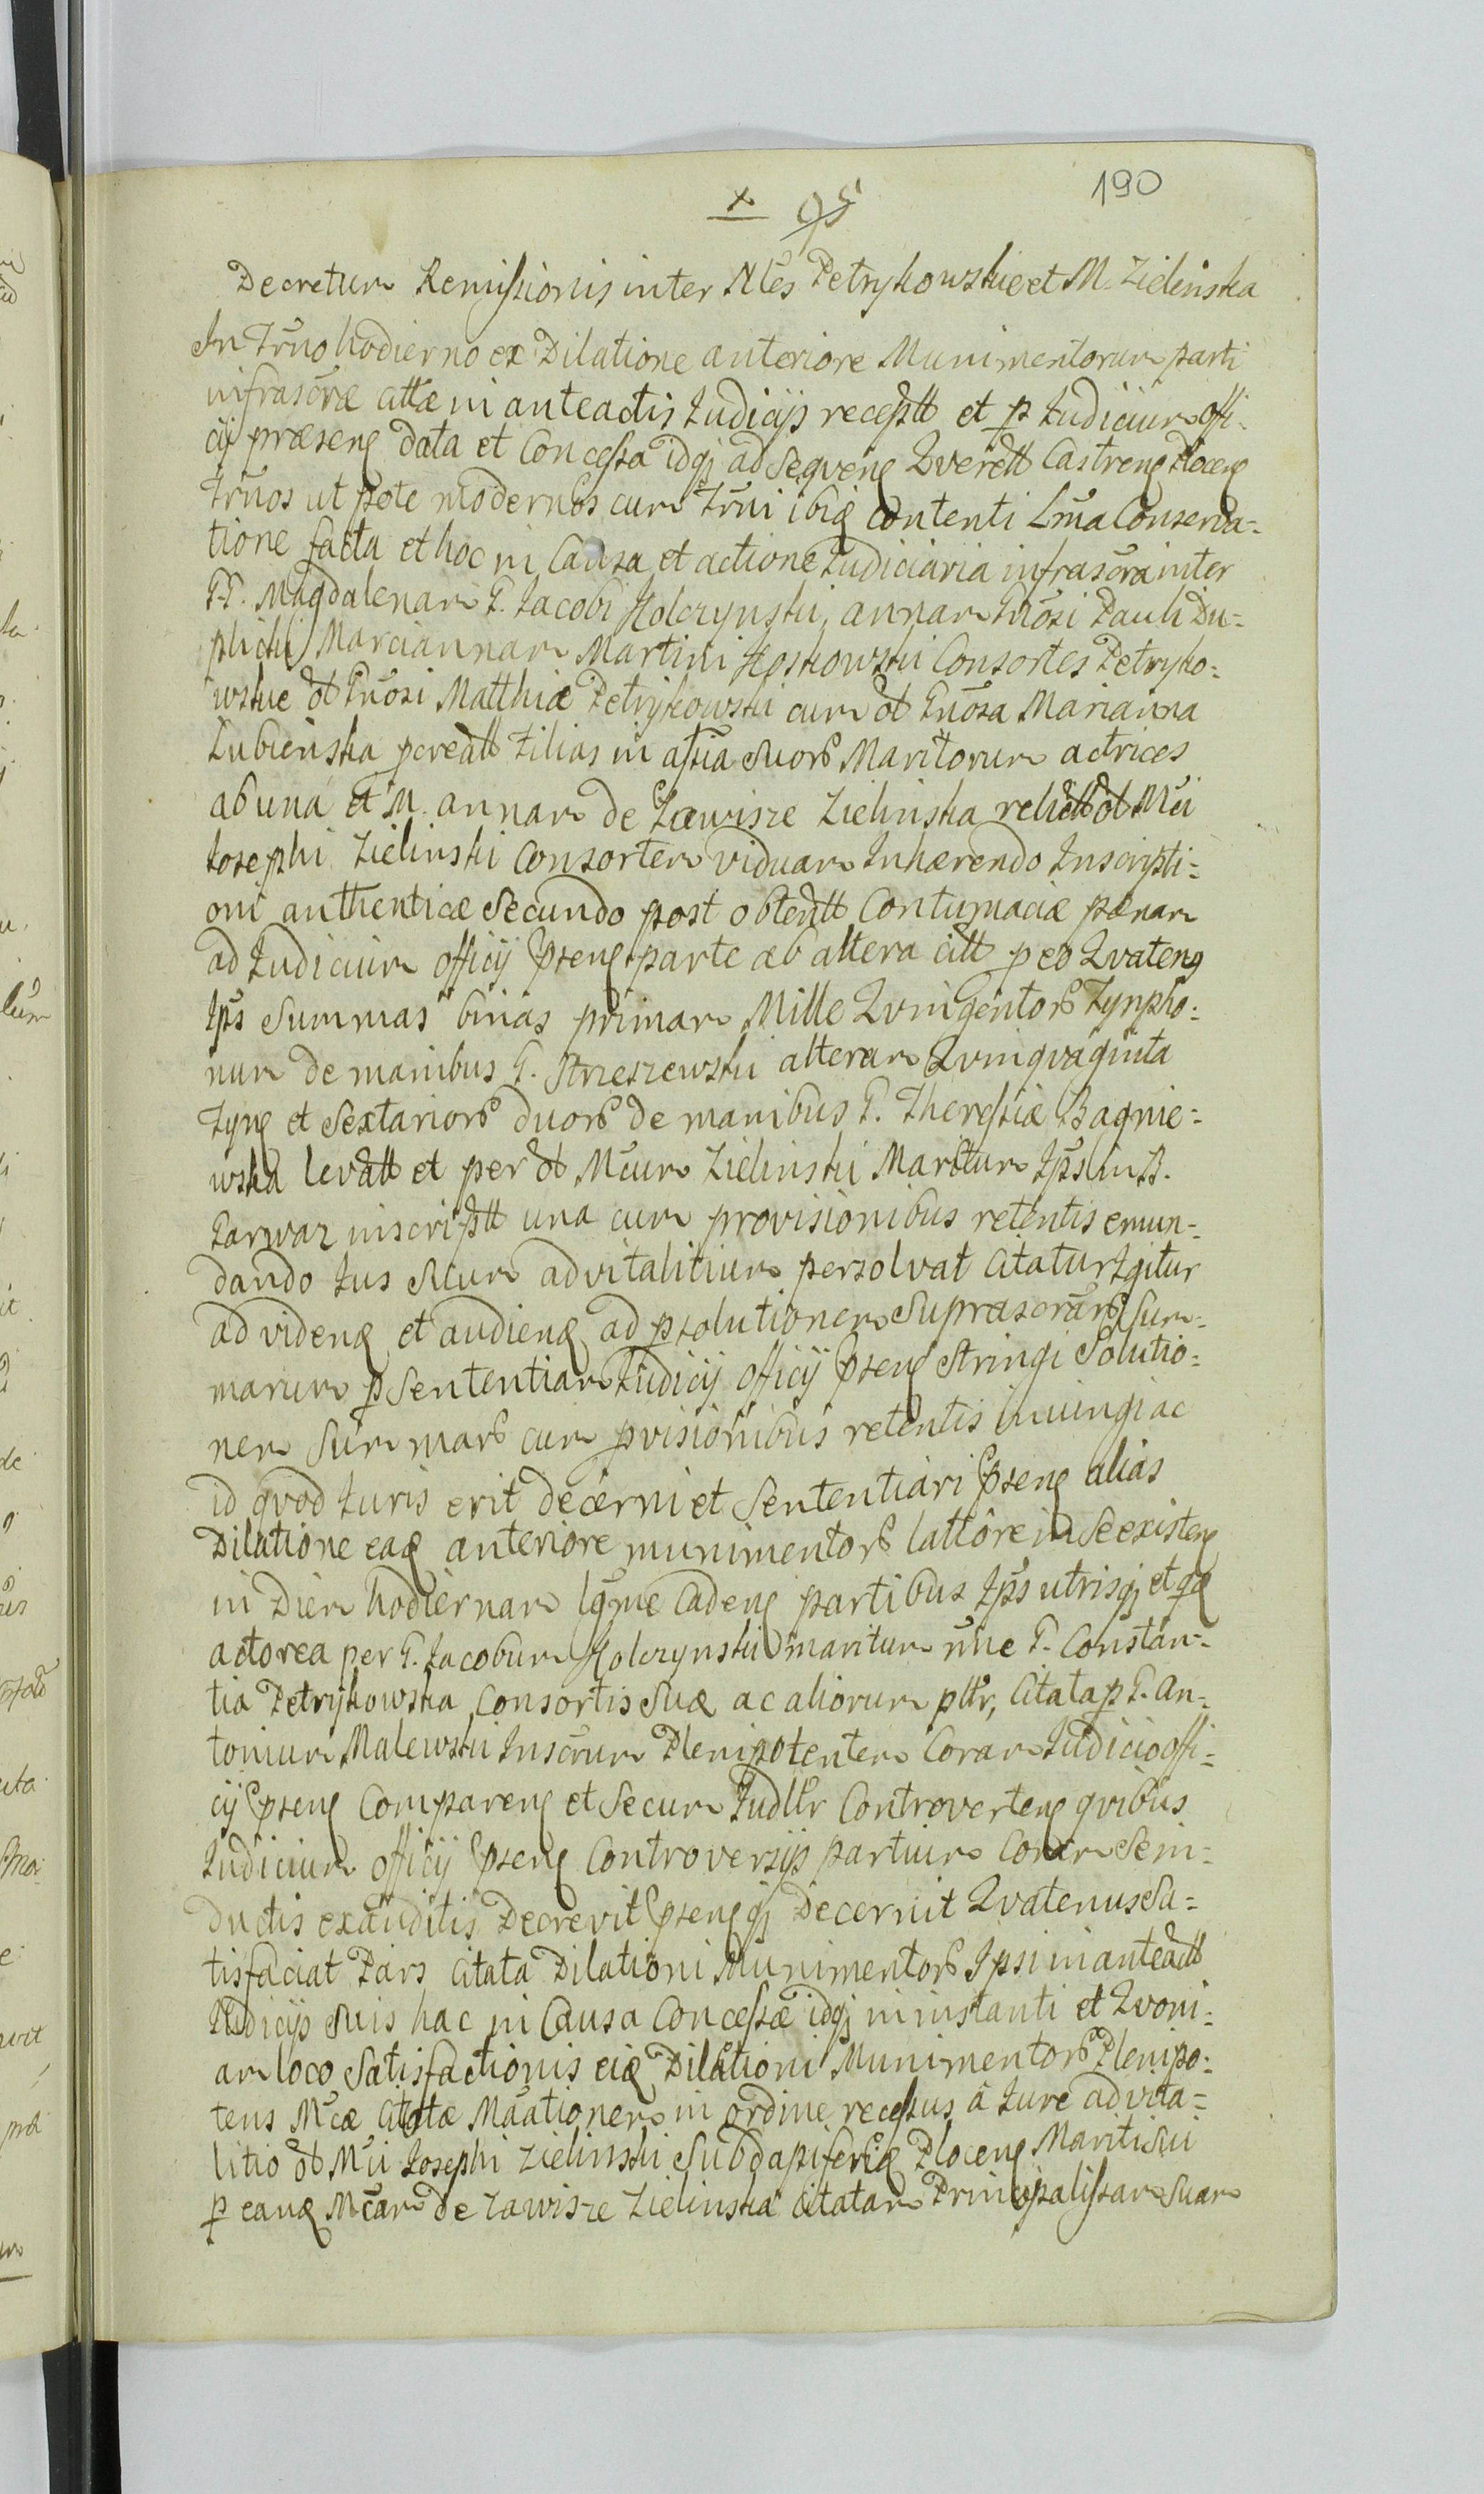 190
x 95
Decretum Remissionis inter Nles Petrykowskie et M. Zielinska
In Trno hodierno ex Dilatione anteriore Munimentorum parti
infrascrae cittae in anteactis Judicijs receptt et p Judicium offi-
cij praesens data et Concessa idqz ad Sequens Querell Castrens Plocens
Trnos ut pote modernos cum Trni ibiq contenti Lrma Conserva=
tione facta et hoc in Causa et actione Judiciaria infrascra inter
G.G. Magdalenam G. Jacobi Holczynski, annam Gnosi Pauli Du=
plicki Mariannam Martini Hoskowski Consortes Petryko=
wskie olt Gnosi Matthiae Petrykowski cum olt Gnosa Marianna
Lubienska pcreatt filias in assia Suors Maritorum actrices
ab una et M. annam de Zawisze Zielinska relictt olt Mci
Josephi Zielinski Consortem viduam Inhaerendo Inscripti=
oni authenticae Secundo post obtentt Contumaciae paenam
ad Judicium officij Psens parte ab altera citt p eo Quatenq
Ips Summas binas primam Mille Quingentors Tympho=
num de manibus G. Strzeszewski alteram Quinquaginta
Tymq et Sextariors duors de manibus G. Theressiae Bagnie=
wska levatt et per olt Mcum Zielinski Maritum Ips in B.
Karwaz inscriptt una cum provisionibus retentis emun-
dando Jus Suum advitalitium persolvat Citatur Igitur
ad videnq et audienq ad psolutionem Suprascrars Sum=
marum p Sententiam Judicij officij Psens Stringi Solutio=
nem Summars cum pvisionibus retentis iniungi ac
id quod Juris erit decerni et Sententiari Psens alias
Dilatione eaq anteriore munimentors lattore in Se existens
in Diem hodiernam lgme Cadens partibus Ips utrisqz et qq
actorea per G. Jacobum Holczynski maritum nne G. Constan-
tia Petrykowska Consortis Suae ac aliorum pltr, Citata p G. An-
tonium Malewski Inscrum Plenipotentem Coram Judicio offi-
cij Psens Comparens et Secum Judltr Controvertens quibus
Judicium officij Psens Controversijs partium Coram Se in-
ductis exauditis Decrevit Psensqz Decernit Quatenus Sa=
tisfaciat Pars Citata Dilationi Munimentors Ipsi in anteactt
Judicijs Suis hac in Causa Concessae idqz in instanti et Quoni-
am loco Satisfactionis eiq Dilationi Munimentors Plenipo-
tens Mcae Citatae Maationem in ordine recessus à Jure advita=
litio olt Mci Josephi Zielinski Subdapiferiq Plocens Mariti Sui
p eanq Mcam de Zawisze Zielinska Citatam Principalissam Suam